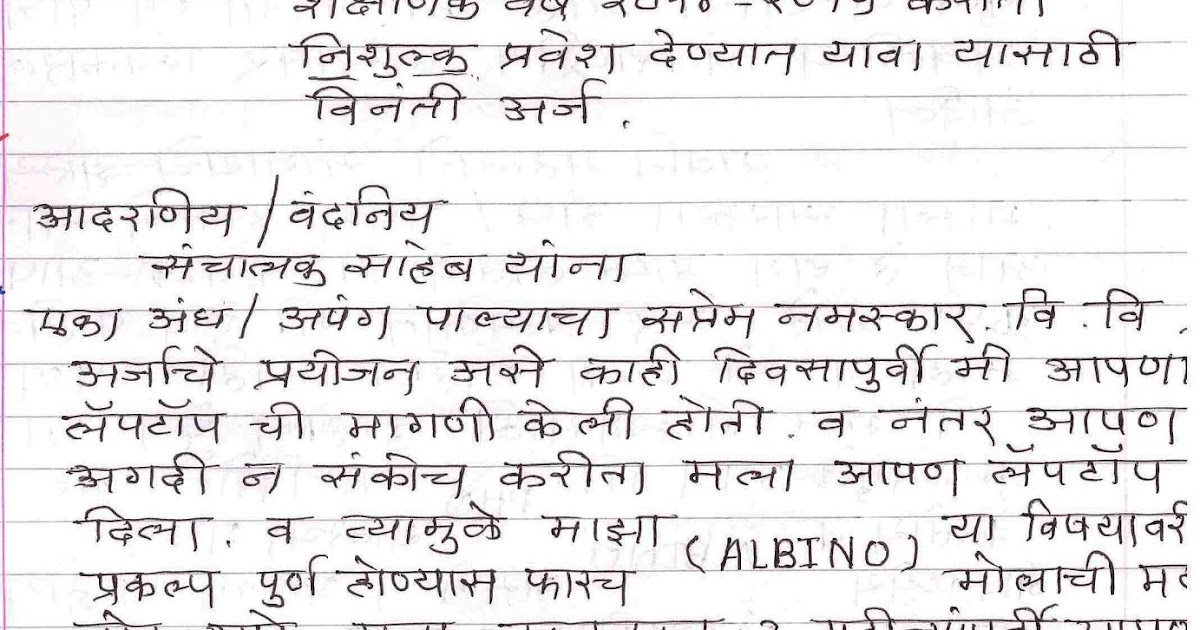 शैक्षणिक वर्ष २०१४ - २०१५ करीता
निशुल्क प्रवेश देण्यात यावा यासाठी
विनंती अर्ज.
आदरणिय / वंदनिय
संचालक साहेब यांना
एका अंध / अपंग पाल्याचा सप्रेम नमस्कार. वि. वि.
अर्जाचे प्रयोजन असे काही दिवसापुर्वी मी आपणा
लॅपटॉप ची मागणी केली होती. व नंतर आपण
अगदी न संकोच करीता मला आपण लॅपटॉप
दिला. व त्यामुळे माझा (ALBINO) या विषयावर
प्रकल्प पुर्ण होण्यास फारच मोलाची मद